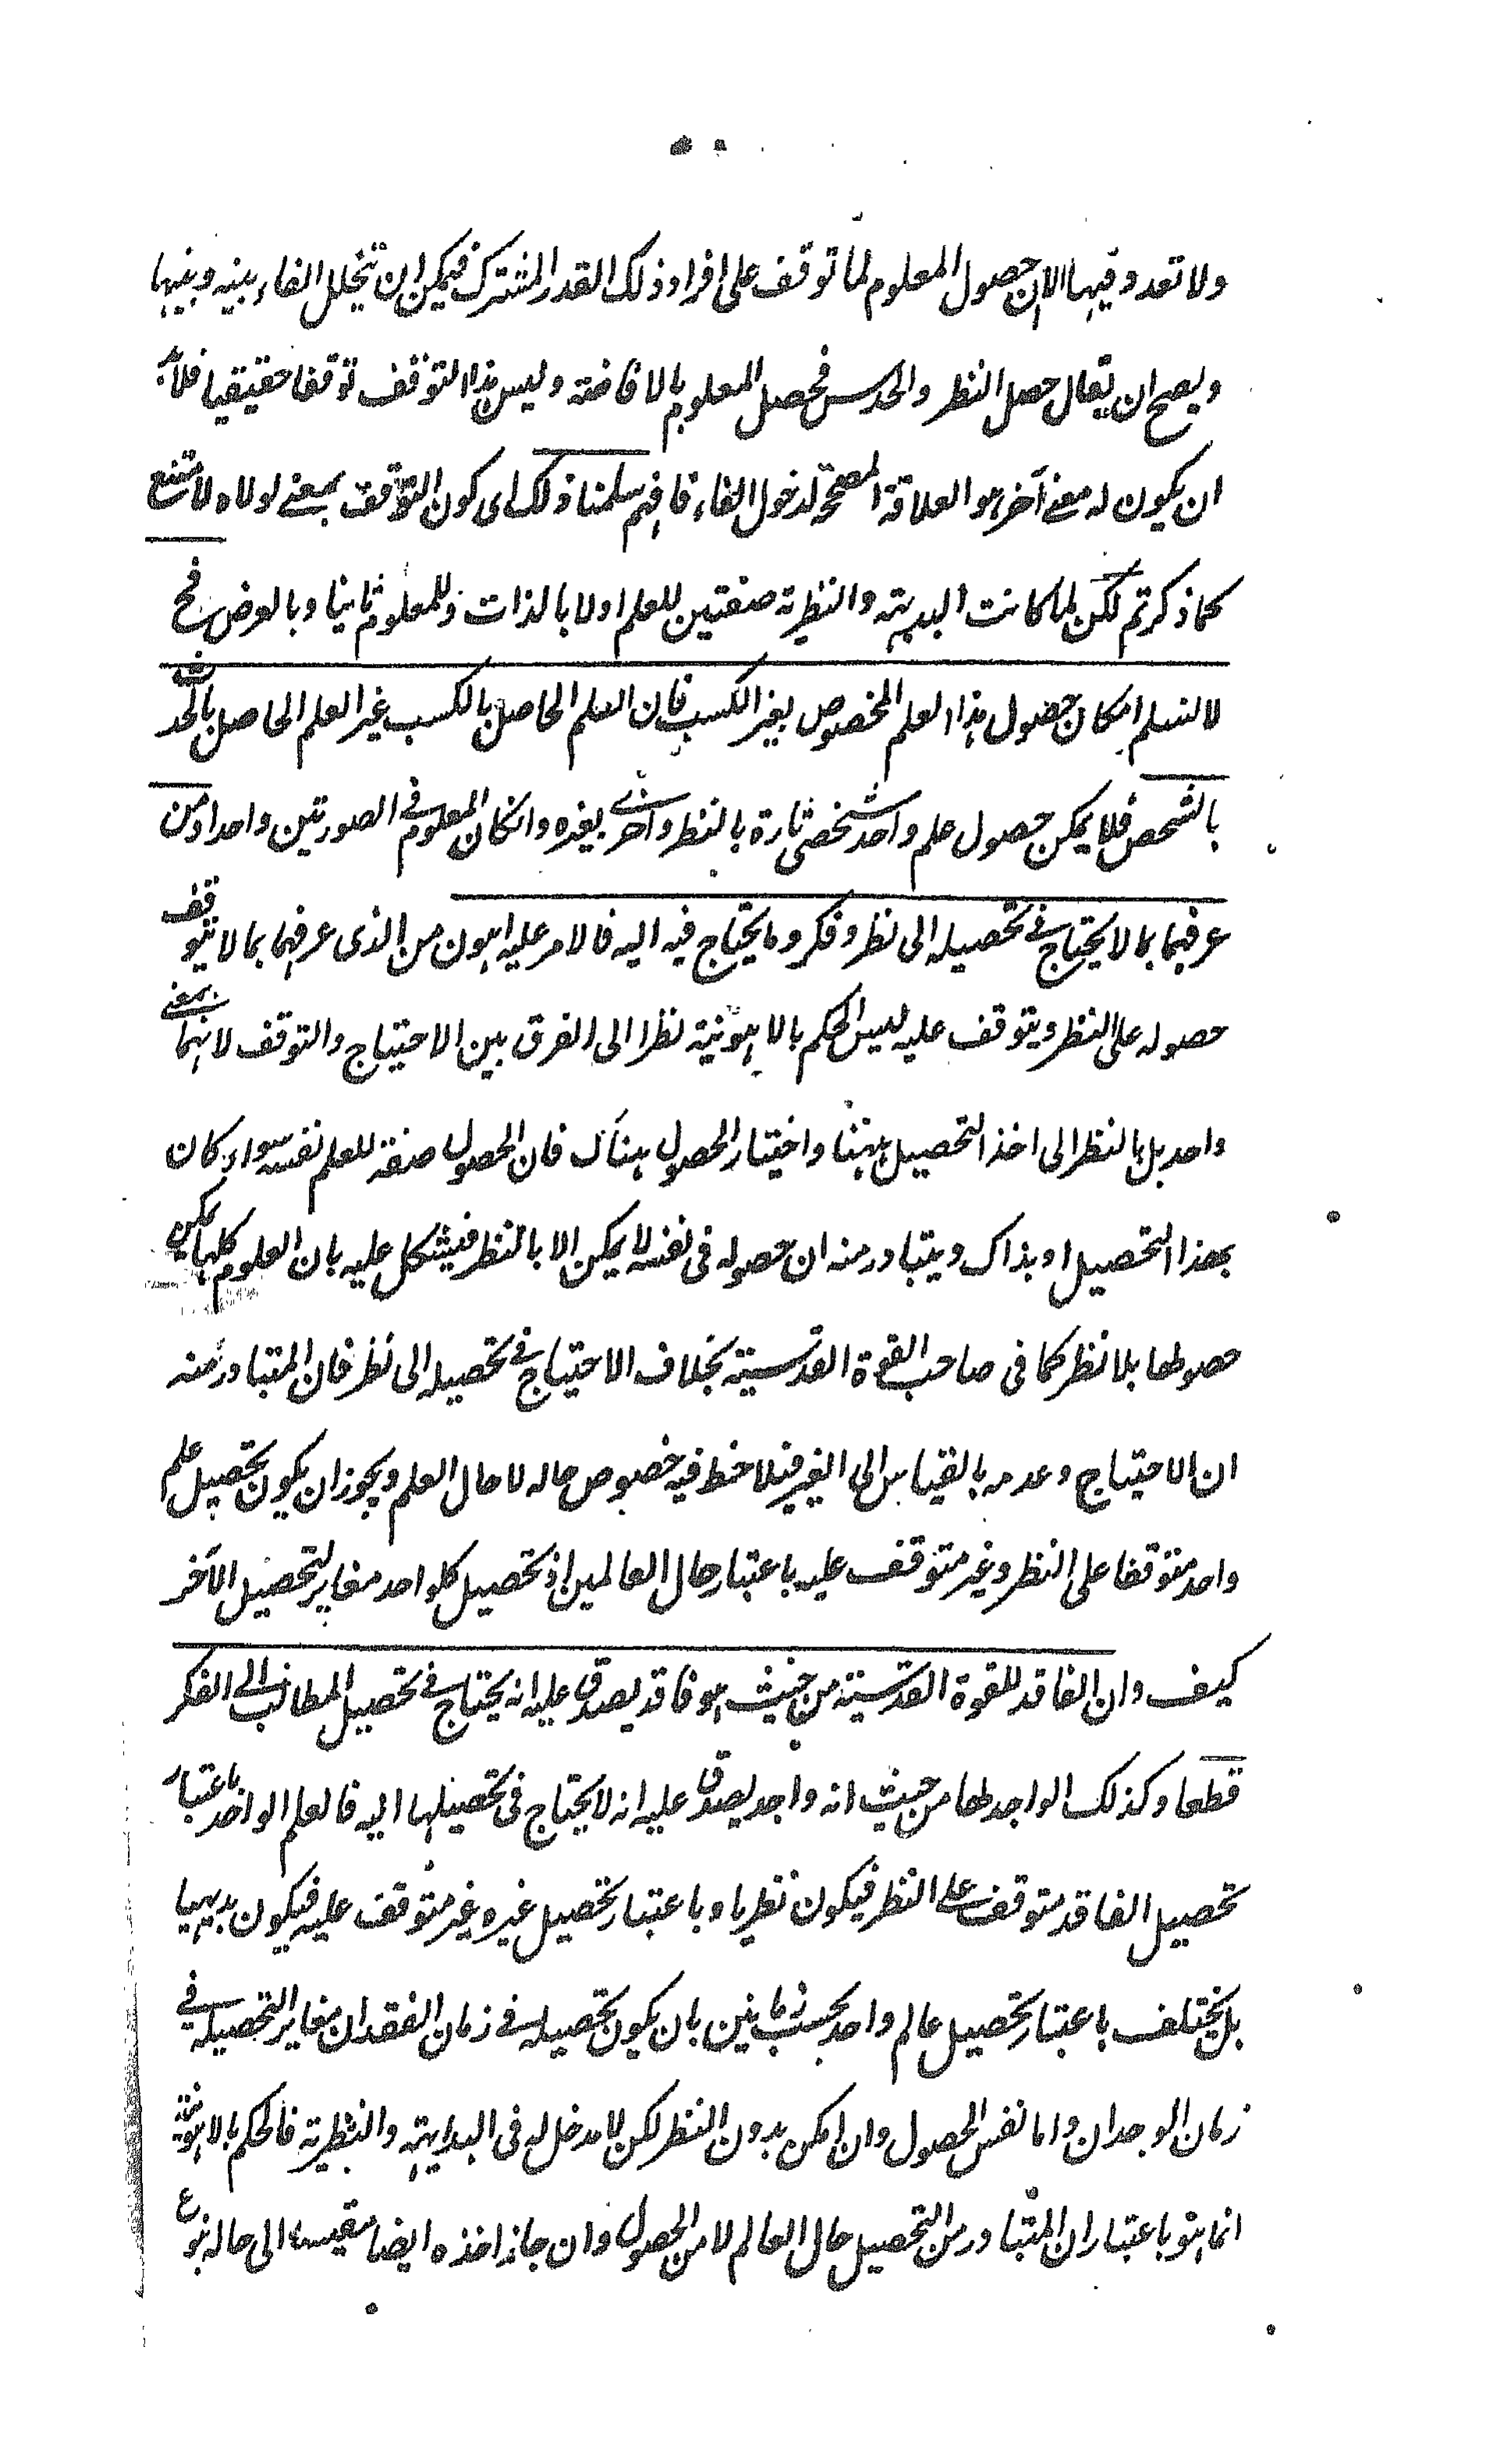 ولا تعدد فيها الا ان حصول المعلوم لما توقف على افراد ذلك القدر المشترك فيمكن ان يتخلل الفاء بينه وبينها
ويصح ان يقال حصل النظر والحدس فحصل المعلوم بالافاضته وليس هذا التوقف توقفا حقيقيا فلا بد
ان يكون له معنى آخر هو العلاقة المصححة لدخول الفاء فافهم سلمنا ذلك اى كون التوقف بمعنى لولاه لامتنع
كما ذكرتم لكن لما كانت البديهية والنظرية صفتين للعلم اولا بالذات وللمعلوم ثانيا وبالعرض فح
لا نسلم امكان حصول هذا العلم المخصوص بغير الكسب فان العلم الحاصل بالكسب غير العلم الحاصل بالحدس
بالشخص فلا يمكن حصول علم واحد شخصى تارة بالنظر واخرى بغيره وان كان المعلوم فى الصورتين واحدا ومن
عرفهما بما لا يحتاج فى تحصيله الى نظر وفكر وما يحتاج فيه اليه فالامر عليه اهون من الذى عرفهما بما لا يتوقف
حصوله على النظر ويتوقف عليه ليس الحكم بالاهونية نظرا الى الفرق بين الاحتياج والتوقف لانهما بمعنى
واحد بل بالنظر الى اخذ التحصيل ههنا واختيار الحصول هناك فان الحصول صفة للعلم نفسه سواء كان
بهذا التحصيل او بذاك ويتبادر منه ان حصوله فى نفسه لا يمكن الا بالنظر فيشكل عليه بان العلوم كلها يمكن
حصولها بلا نظر كما فى صاحب القوة القدسية بخلاف الاحتياج فى تحصيله الى نظر فان المتبادر منه
ان الاحتياج وعدمه بالقياس الى الغير فيلاحظ فيه خصوص حاله لا حال العلم ويجوز ان يكون تحصيل علم
واحد متوقفا على النظر وغير متوقف عليه باعتبار حال العالمين اذ تحصيل كل واحد مغاير لتحصيل الآخر
كيف وان الفاقد للقوة القدسية من حيث هو فاقد يصدق عليه انه يحتاج فى تحصيل المطالب الى الفكر
قطعا وكذلك الواجد لها من حيث انه واجد يصدق عليه انه لا يحتاج فى تحصيلها اليه فالعلم الواحد باعتبار
تحصيل الفاقد متوقف على النظر فيكون نظريا وباعتبار تحصيل غيره غير متوقف عليه فيكون بديهيا
بل يختلف باعتبار تحصيل عالم واحد بحسب زمانين بان يكون تحصيله فى زمان الفقدان مغاير التحصيله فى
زمان الوجدان واما نفس الحصول وان امكن بدون النظر لكن لا مدخل له فى البداهة والنظرية فالحكم بالاهونية
انما هو باعتبار ان المتبادر من التحصيل حال العالم لا من الحصول وان جاز اخذه ايضا مقيسا الى حاله بنوع